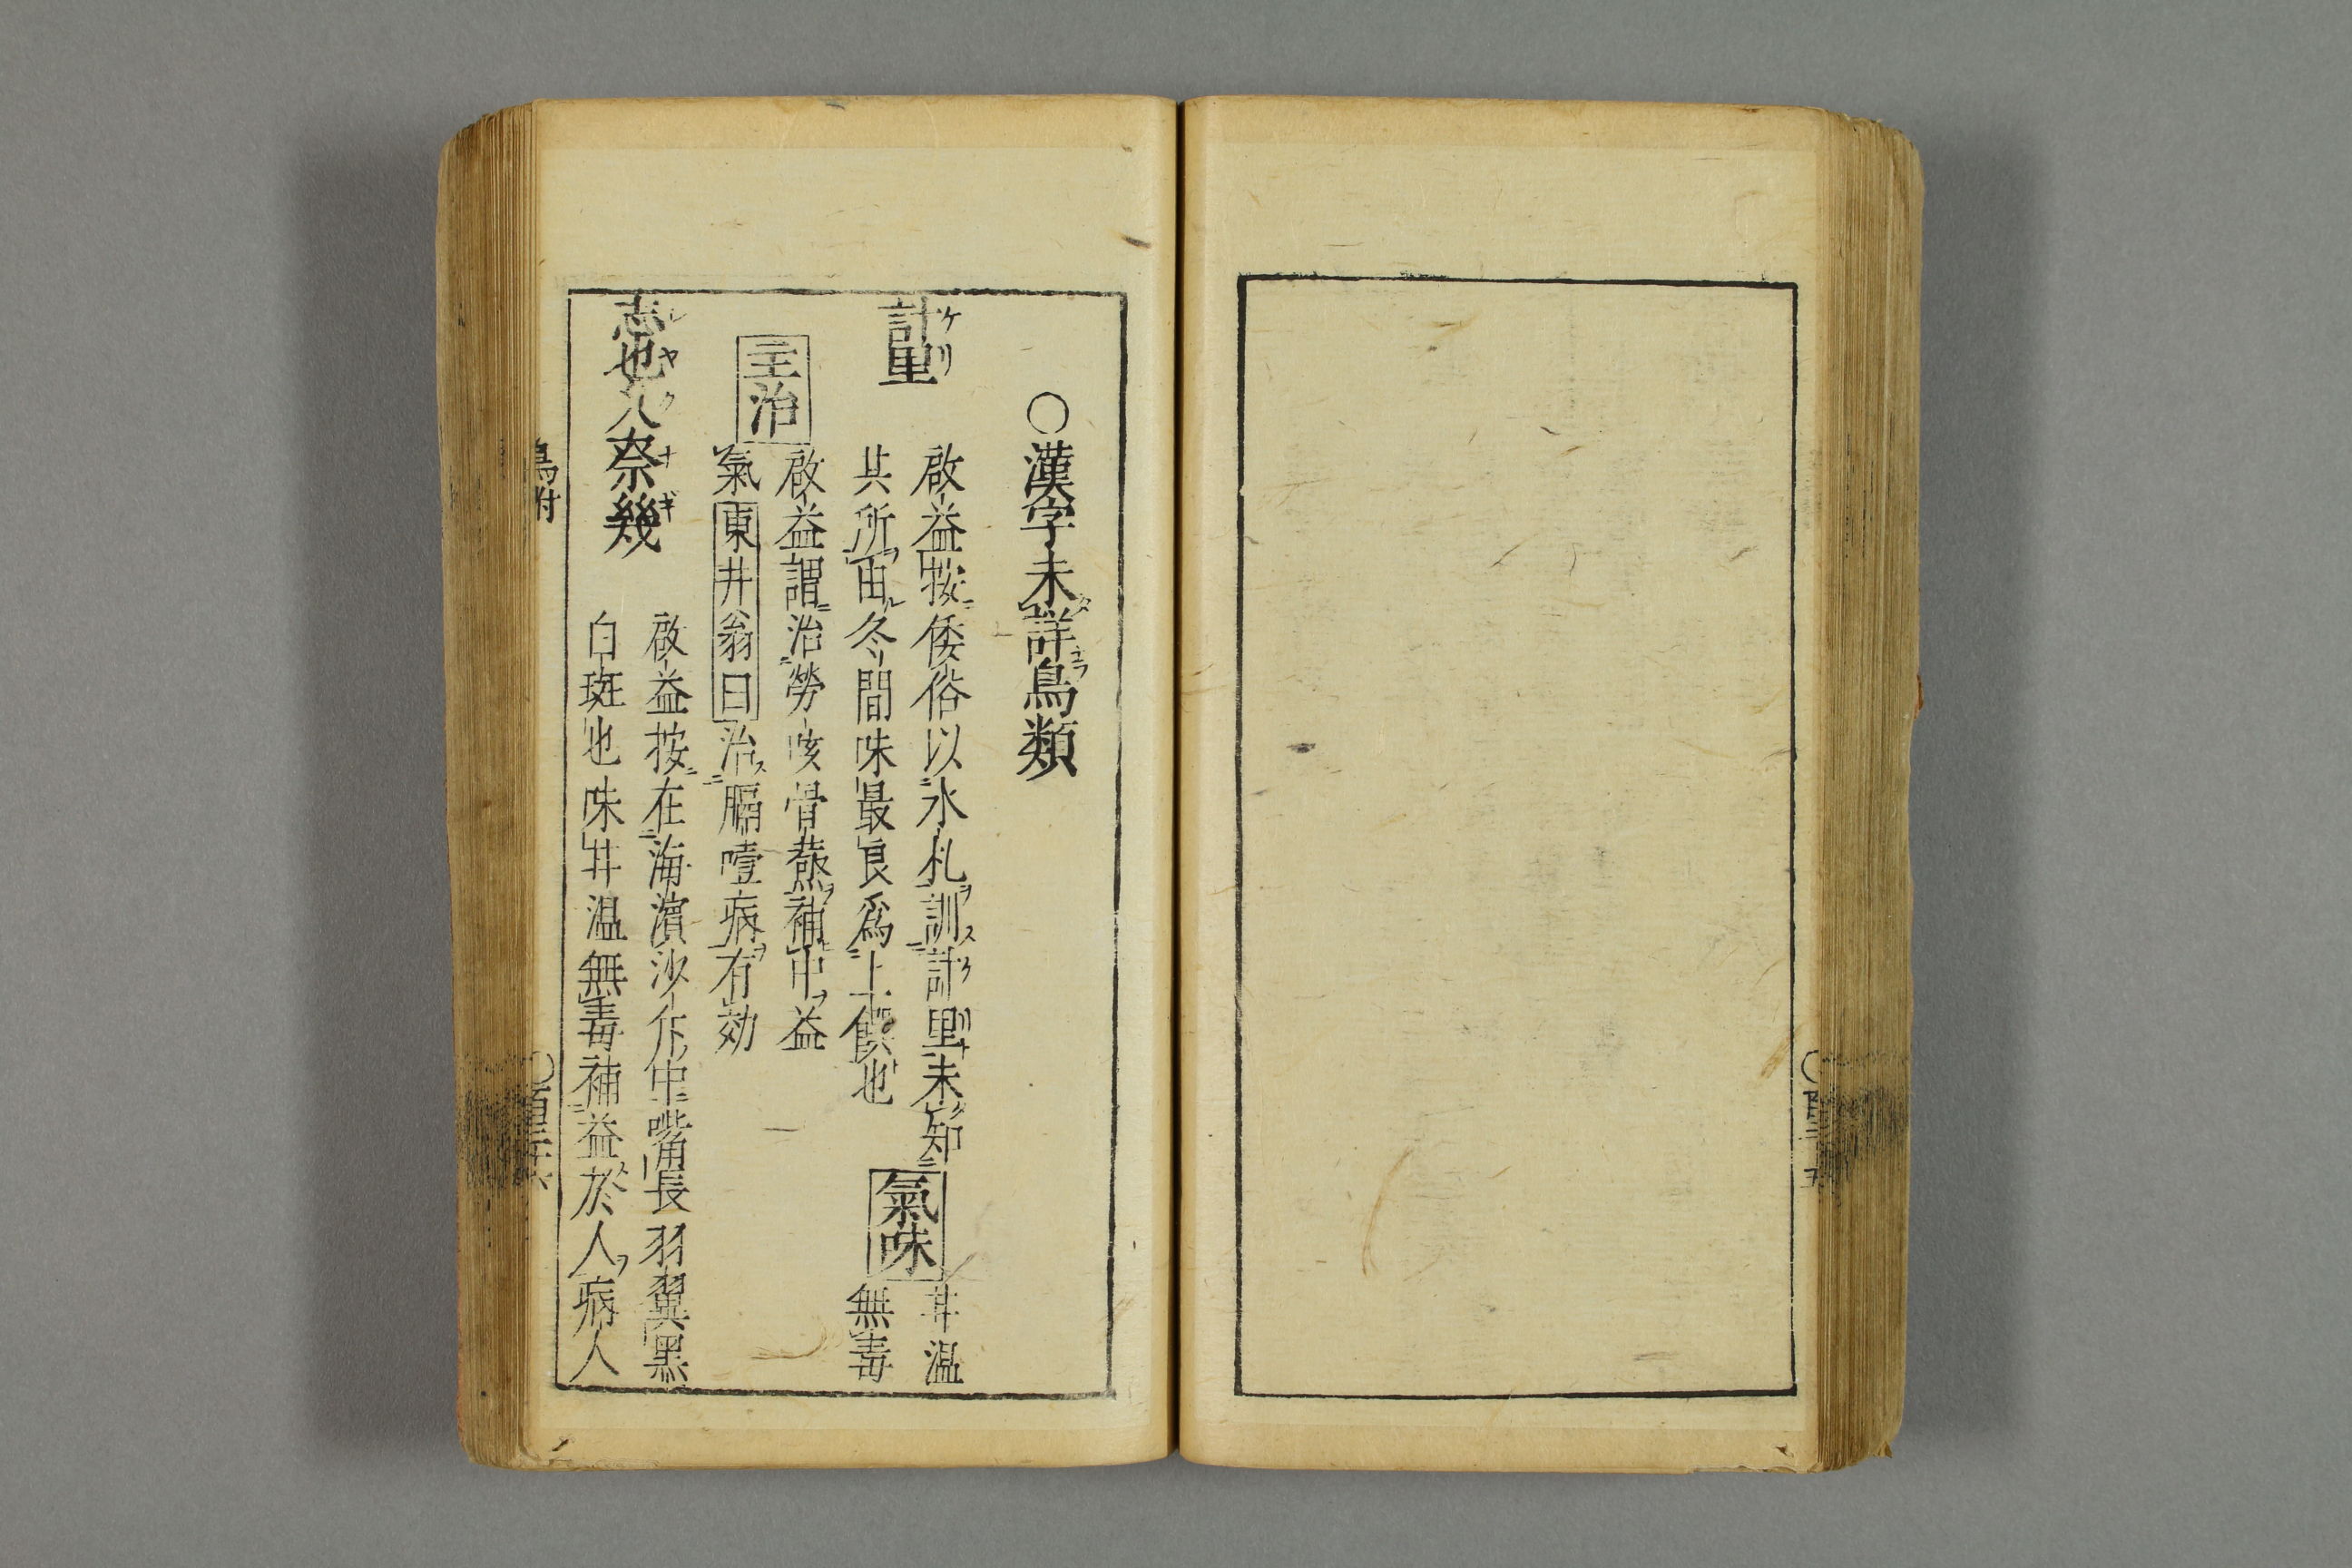 ○漢字未詳鳥類
計里
ケリ
啟益按倭俗以水札訓計里未知
其所由冬間味最良為上饌也
氣味
甘溫
無毒
主治
啟益謂治勞咳骨蒸補中益
氣東井翁曰治膈噎病有効
志也久奈幾
シヤクナギ
啟益按在海濱沙斥中嘴長羽翼黑
白斑也味甘溫無毒補益於人病人
鳥附